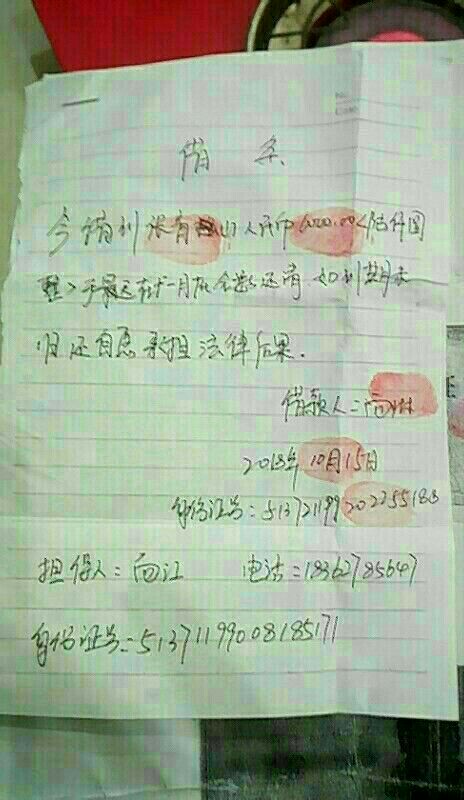 借条
今借到张育山人民币6000.00<陆仟圆
整>于最迟在十一月底全款还清如到期未
归还自愿承担法律后果.
借款人:向林
2018年10月15日
身份证号:
担保人:向江 电话:18362785647
身份证号:51371199008185171